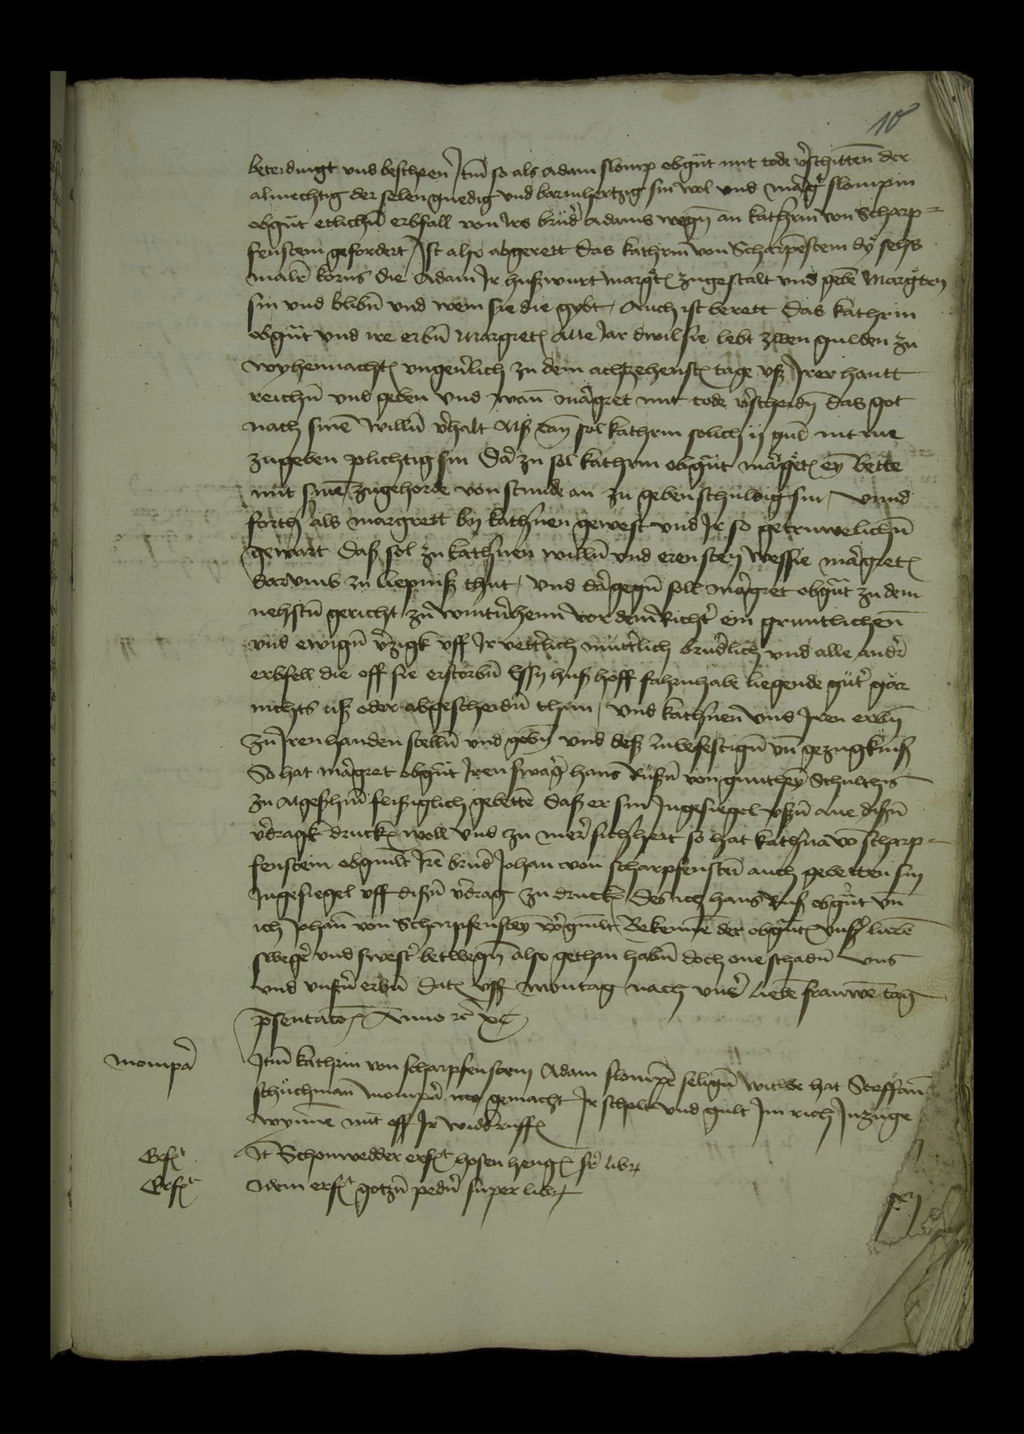 10
beteidingt und bescheen Item so als Adam Slomp obgnt mit tode verschitten der
almechtig der selen gnedig und barmhertzig sin wol und Margr Slompin
obgnt etlichen erbfall von irs bruder Adams wegen an Kathrin von Scharp-
fenstein gefordert Ist also abgerett das Kathrin von Scharpestein dy sehs
malder korns die Adam Ir huszwurt Margret zugestalt und geben Margreten
sin und bliben und wem sie die gybt Auch ist berett das Kathrin
obgnt und ire erben Margreten alle Jar dwil sie lebt zwen gulden zu
wyhennachten ungeverlich zu dem achtzehensten tage usz Irer hantt
reichen und geben und wan Margret mit tode verscheiden das got
nach sinem willen verhalt Als dan sol Kathrin solich ij gulden nit me
zugeben plichtig sin Da zu sol Kathrin obgnt Margreten ey bette
mit sinem zugehorde von stunde an zu geben schuldig sin Unnd
forth als Margrett by Kathrinen gewest und Ir so getruwelichen
gewart dasz sol zu Kathrinen willen und eren steen wessie Margreten
darumb zu liepnisz thut und dargegen soll Margret obgnt zu dem
nehsten gericht zu Wintterheim vor dem Richter ein gruntlichen
und ewigen verzigk uff Ir vetterlich mutterlich bruderlich und alle ander
erbfell die off sie erstorben Essy husz hoff fahrnhabe liegende guter gar
nichts usz oder abgescheiden thun und Kathrinen und Iren erben
zu Iren handen stellen und geben und desz zu befestigen und gezugknisz
So hat Margret obgnt Iren swager Hans Ruszen von Schultheis
zu Algeszheim fliszlich gebetten dasz er sin Ingesiegel uszen ane diszen
verdragk drucken woll und zu merer sicherheit so hat Kathrina von Scharp-
fenstein obgemelt Iren bruder Johan von Scharpfenstein auch gebetten sin
Ingesiegel uff diszen verdrag zu drucken Des ich Hans Rusz obgnt und
ich Johan von Scharpfenstein vorgemelt Bekennen der obgnten unszer lieben
sweger und swester betwegen also gethan haben doch one schaden uns
und unszern erben Daten uff Montag nach unser lieben frauwen tag
presentationis Anno etc xc
Momper
Item Kathrin von Scharpfenstein Adam Slompen seligen witwe hat Steffan
Schuchman momper gemacht Ir scholt und gult Im rich Inzuge
wynnen mit off Ir widderruffen
Erfelt
It Schonwedder erfelt hosen hengen super libr
Erfelt
Idem erfelt gotzen peder super libr